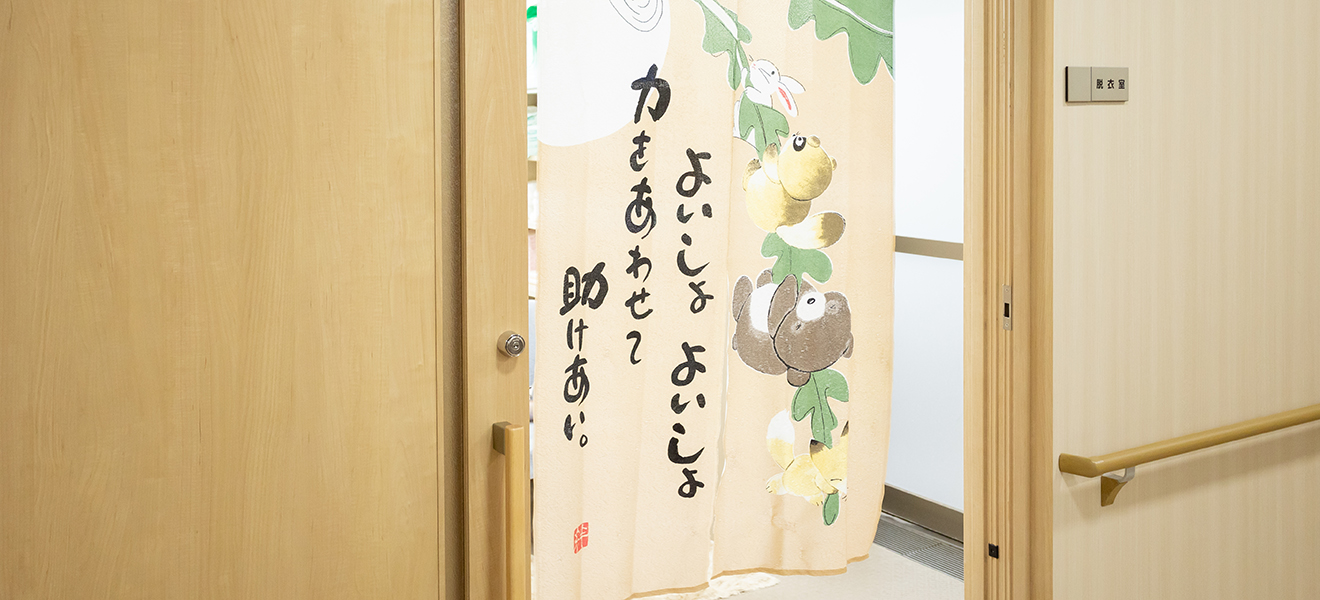 よいしょ よいしょ
力をあわせて
助けあい。
脱衣室